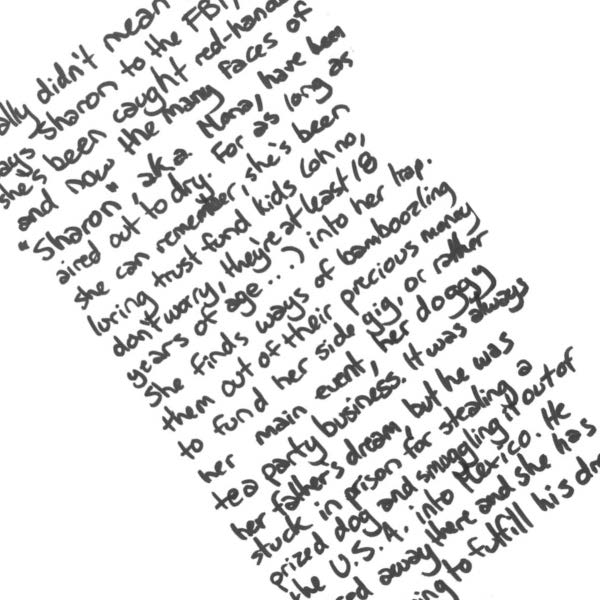 didn't mean
Sharon to the FBI,
she's been caught
and now the many faces of
"Sharon", aka Nana, have been
aired out to dry. For as long as
she can remember, she's been
luring trust fund kids (oh no,
don't worry, they're at least 18
years of age...) into her trap.
She finds ways of bamboozling
them out of their precious money
to fund her side gig, or rather
her main event, her doggy
tea party business. It was always
her father's dream, but he was
stuck in prison for stealing a
prized dog and smuggling it out of
the U.S.A. into Mexico. He
away there and she has
to fulfill his